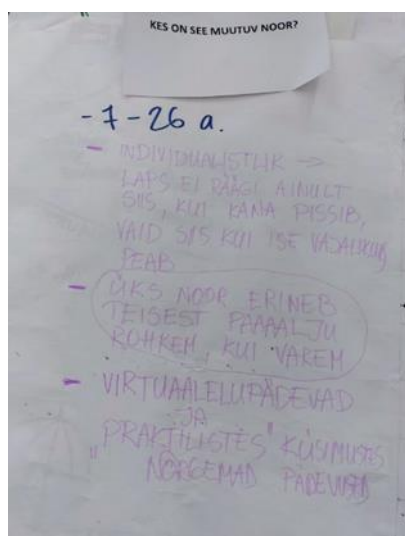 KES ON SEE MUUTUV NOOR?
- 7-26 a.
- INDIVIDUALISTLIK →
LAPS EI RÄÄGI AINULT
SIIS, KUI KANA PISSIB,
VAID SIIS KUI ISE VAJALIKUKS
PEAB
- ÜKS NOOR ERINEB
TEISEST PAAAALJU
ROHKEM, KUI VAREM
- VIRTUAALELUPÄDEVAD
JA
"PRAKTILISTES" KÜSIMUSTES
NÕRGEMAD PÄDEVUSED